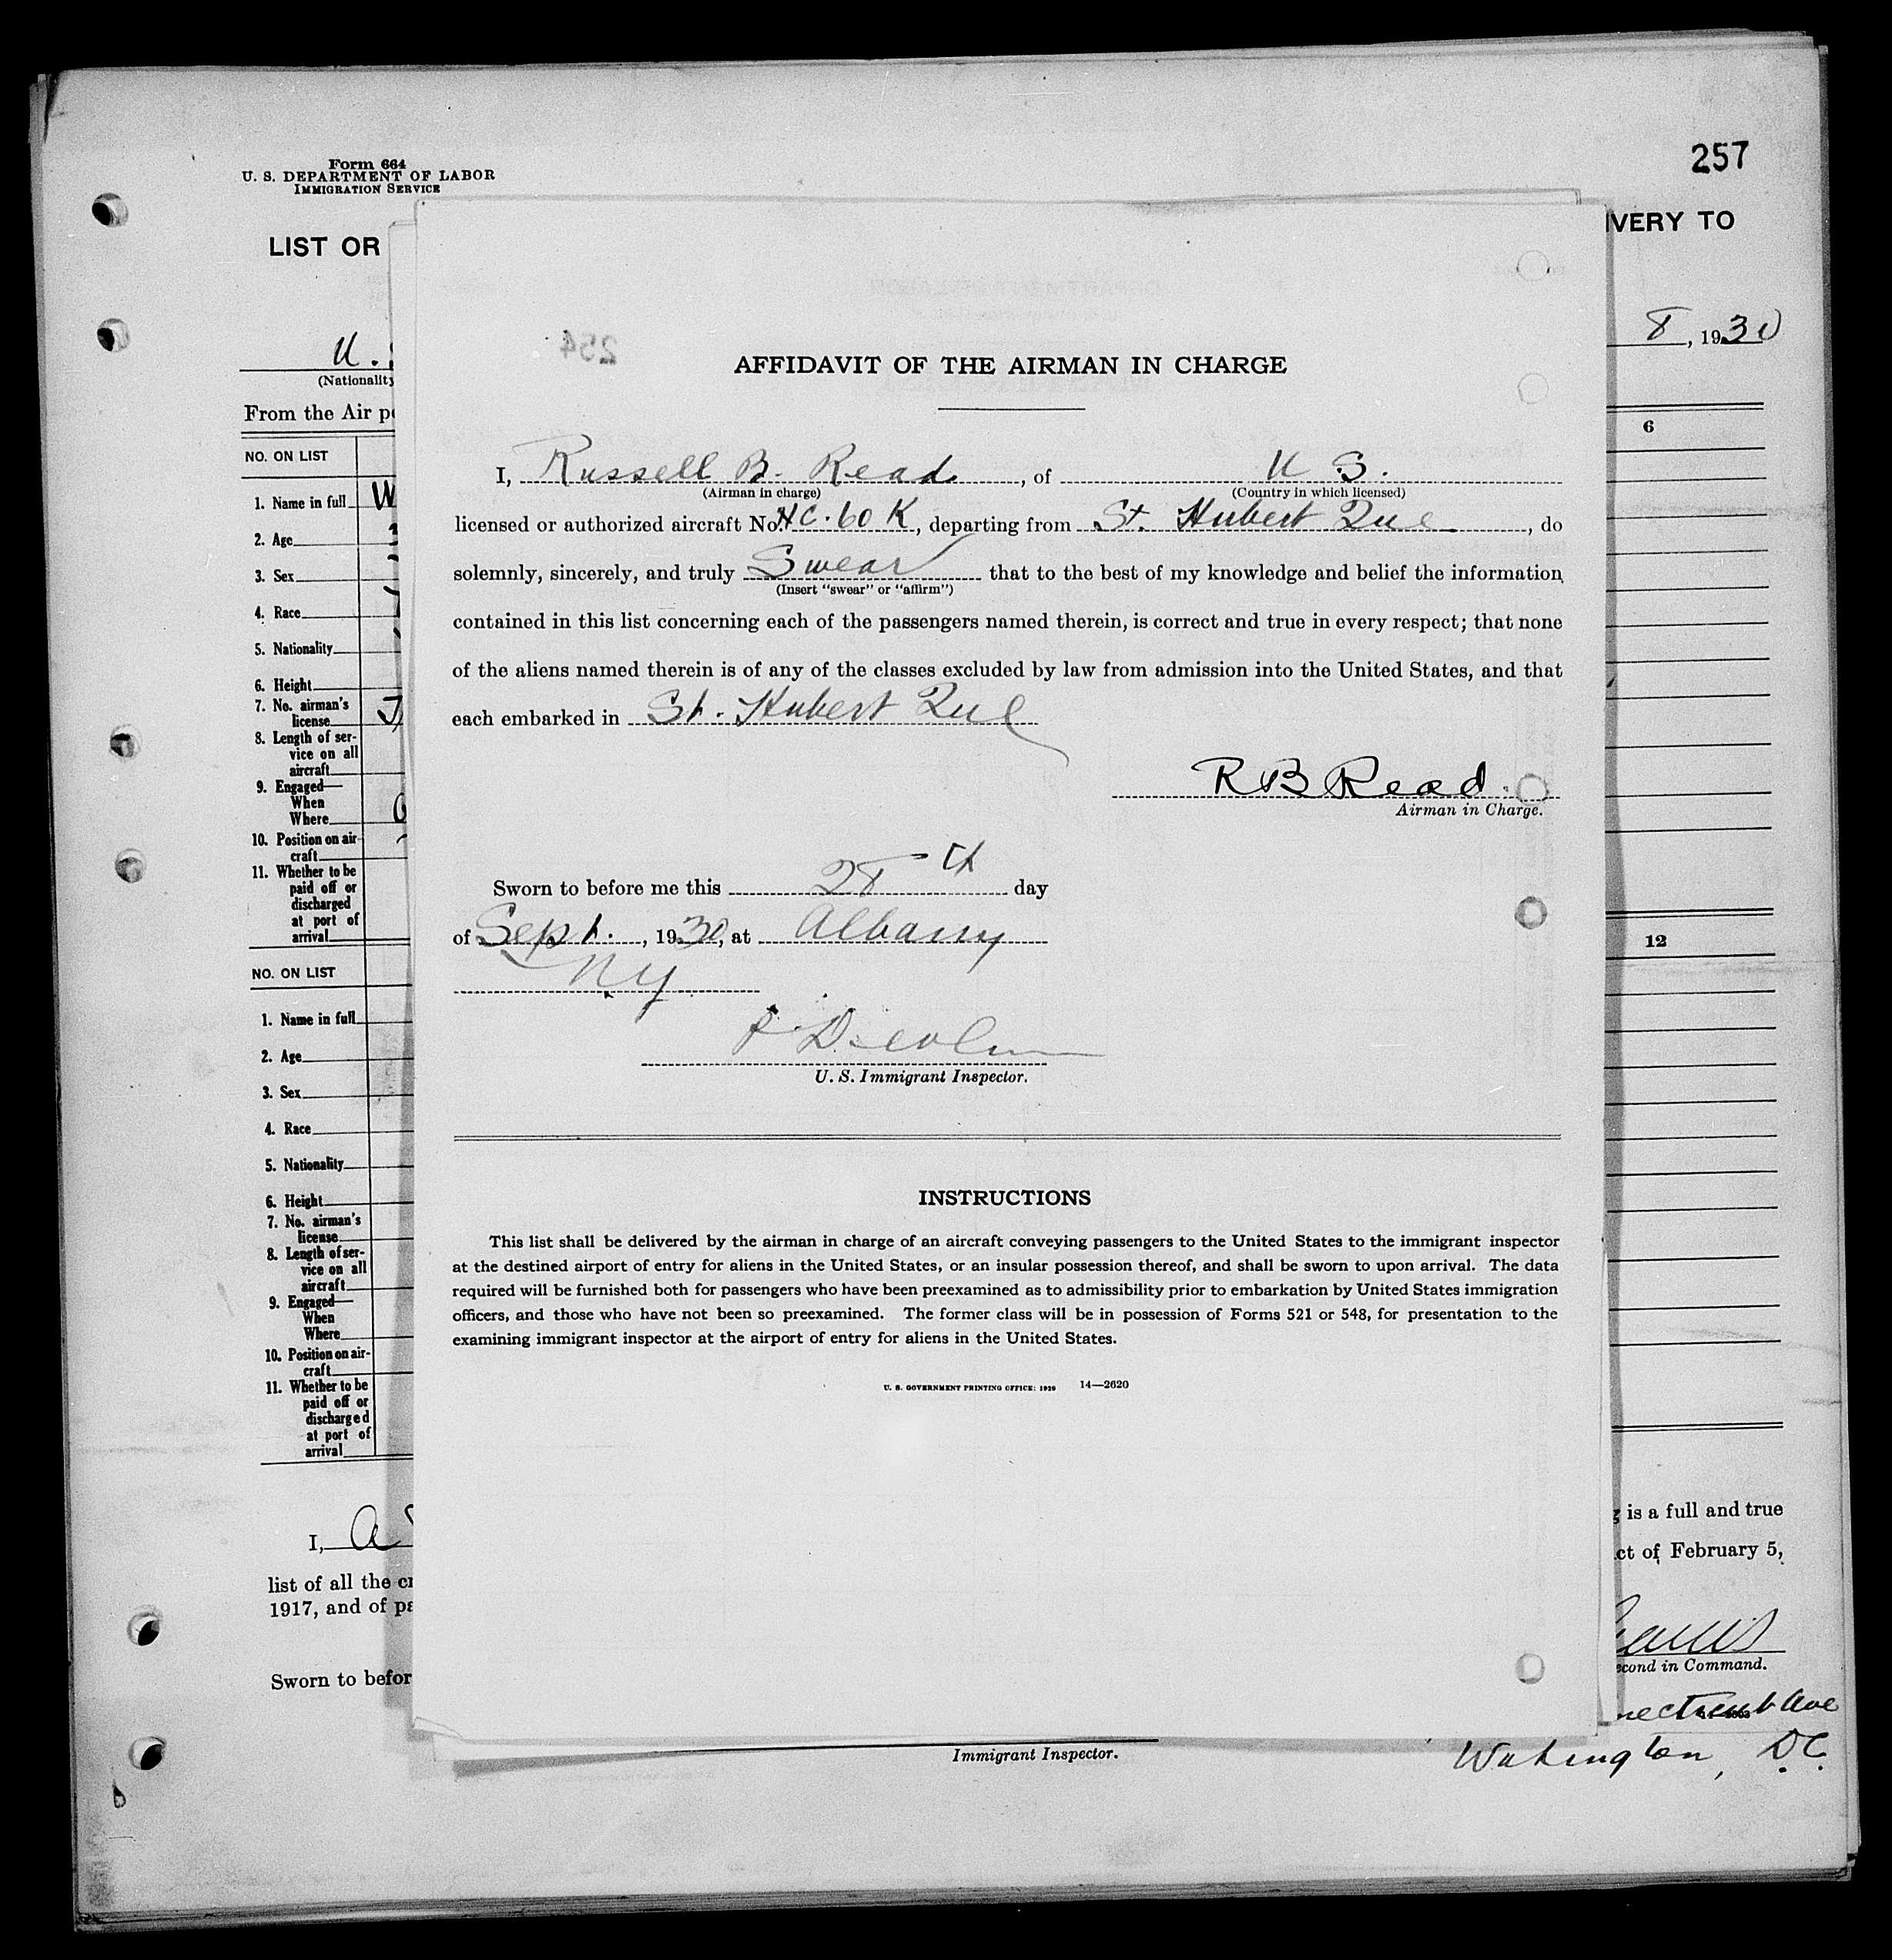 Form 664
U. S. DEPARTMENT OF LABOR
IMMIGRATION SERVICE
257
LIST OR
IVERY TO
8, 1930
(Nationality
From the Air po
NO. ON LIST
6
1. Name in full
2. Age
3. Sex
4. Race
5. Nationality
6. Height
7. No. airman's
license
8. Length of ser-
vice on all
aircraft
9. Engaged—
When
Where
10. Position on air-
craft
11. Whether to be
paid off or
discharged
at port of
arrival
NO. ON LIST
12
1. Name in full
2. Age
3. Sex
4. Race
5. Nationality
6. Height
7. No. airman's
license
8. Length of ser-
vice on all
aircraft
9. Engaged—
When
Where
10. Position on air-
craft
11. Whether to be
paid off or
discharged
at port of
arrival
I, A
is a full and true
list of all the cr
ct of February 5,
1917, and of pa
Sworn to befor
econd in Command.
necticut Ave
Wahington, D.C.
Immigrant Inspector.
254
AFFIDAVIT OF THE AIRMAN IN CHARGE
I, Russell B. Read, of U S.
(Airman in charge) (Country in which licensed)
licensed or authorized aircraft No. NC.60 K, departing from St. Hubert Que, do
solemnly, sincerely, and truly Swear that to the best of my knowledge and belief the information
(Insert "swear" or "affirm")
contained in this list concerning each of the passengers named therein, is correct and true in every respect; that none
of the aliens named therein is of any of the classes excluded by law from admission into the United States, and that
each embarked in St. Hubert Que
R B Read.
Airman in Charge.
Sworn to before me this 28th day
of Sept., 1930, at Albany
NY
U. S. Immigrant Inspector.
INSTRUCTIONS
This list shall be delivered by the airman in charge of an aircraft conveying passengers to the United States to the immigrant inspector
at the destined airport of entry for aliens in the United States, or an insular possession thereof, and shall be sworn to upon arrival. The data
required will be furnished both for passengers who have been preexamined as to admissibility prior to embarkation by United States immigration
officers, and those who have not been so preexamined. The former class will be in possession of Forms 521 or 548, for presentation to the
examining immigrant inspector at the airport of entry for aliens in the United States.
U. S. GOVERNMENT PRINTING OFFICE: 1929 14—2620